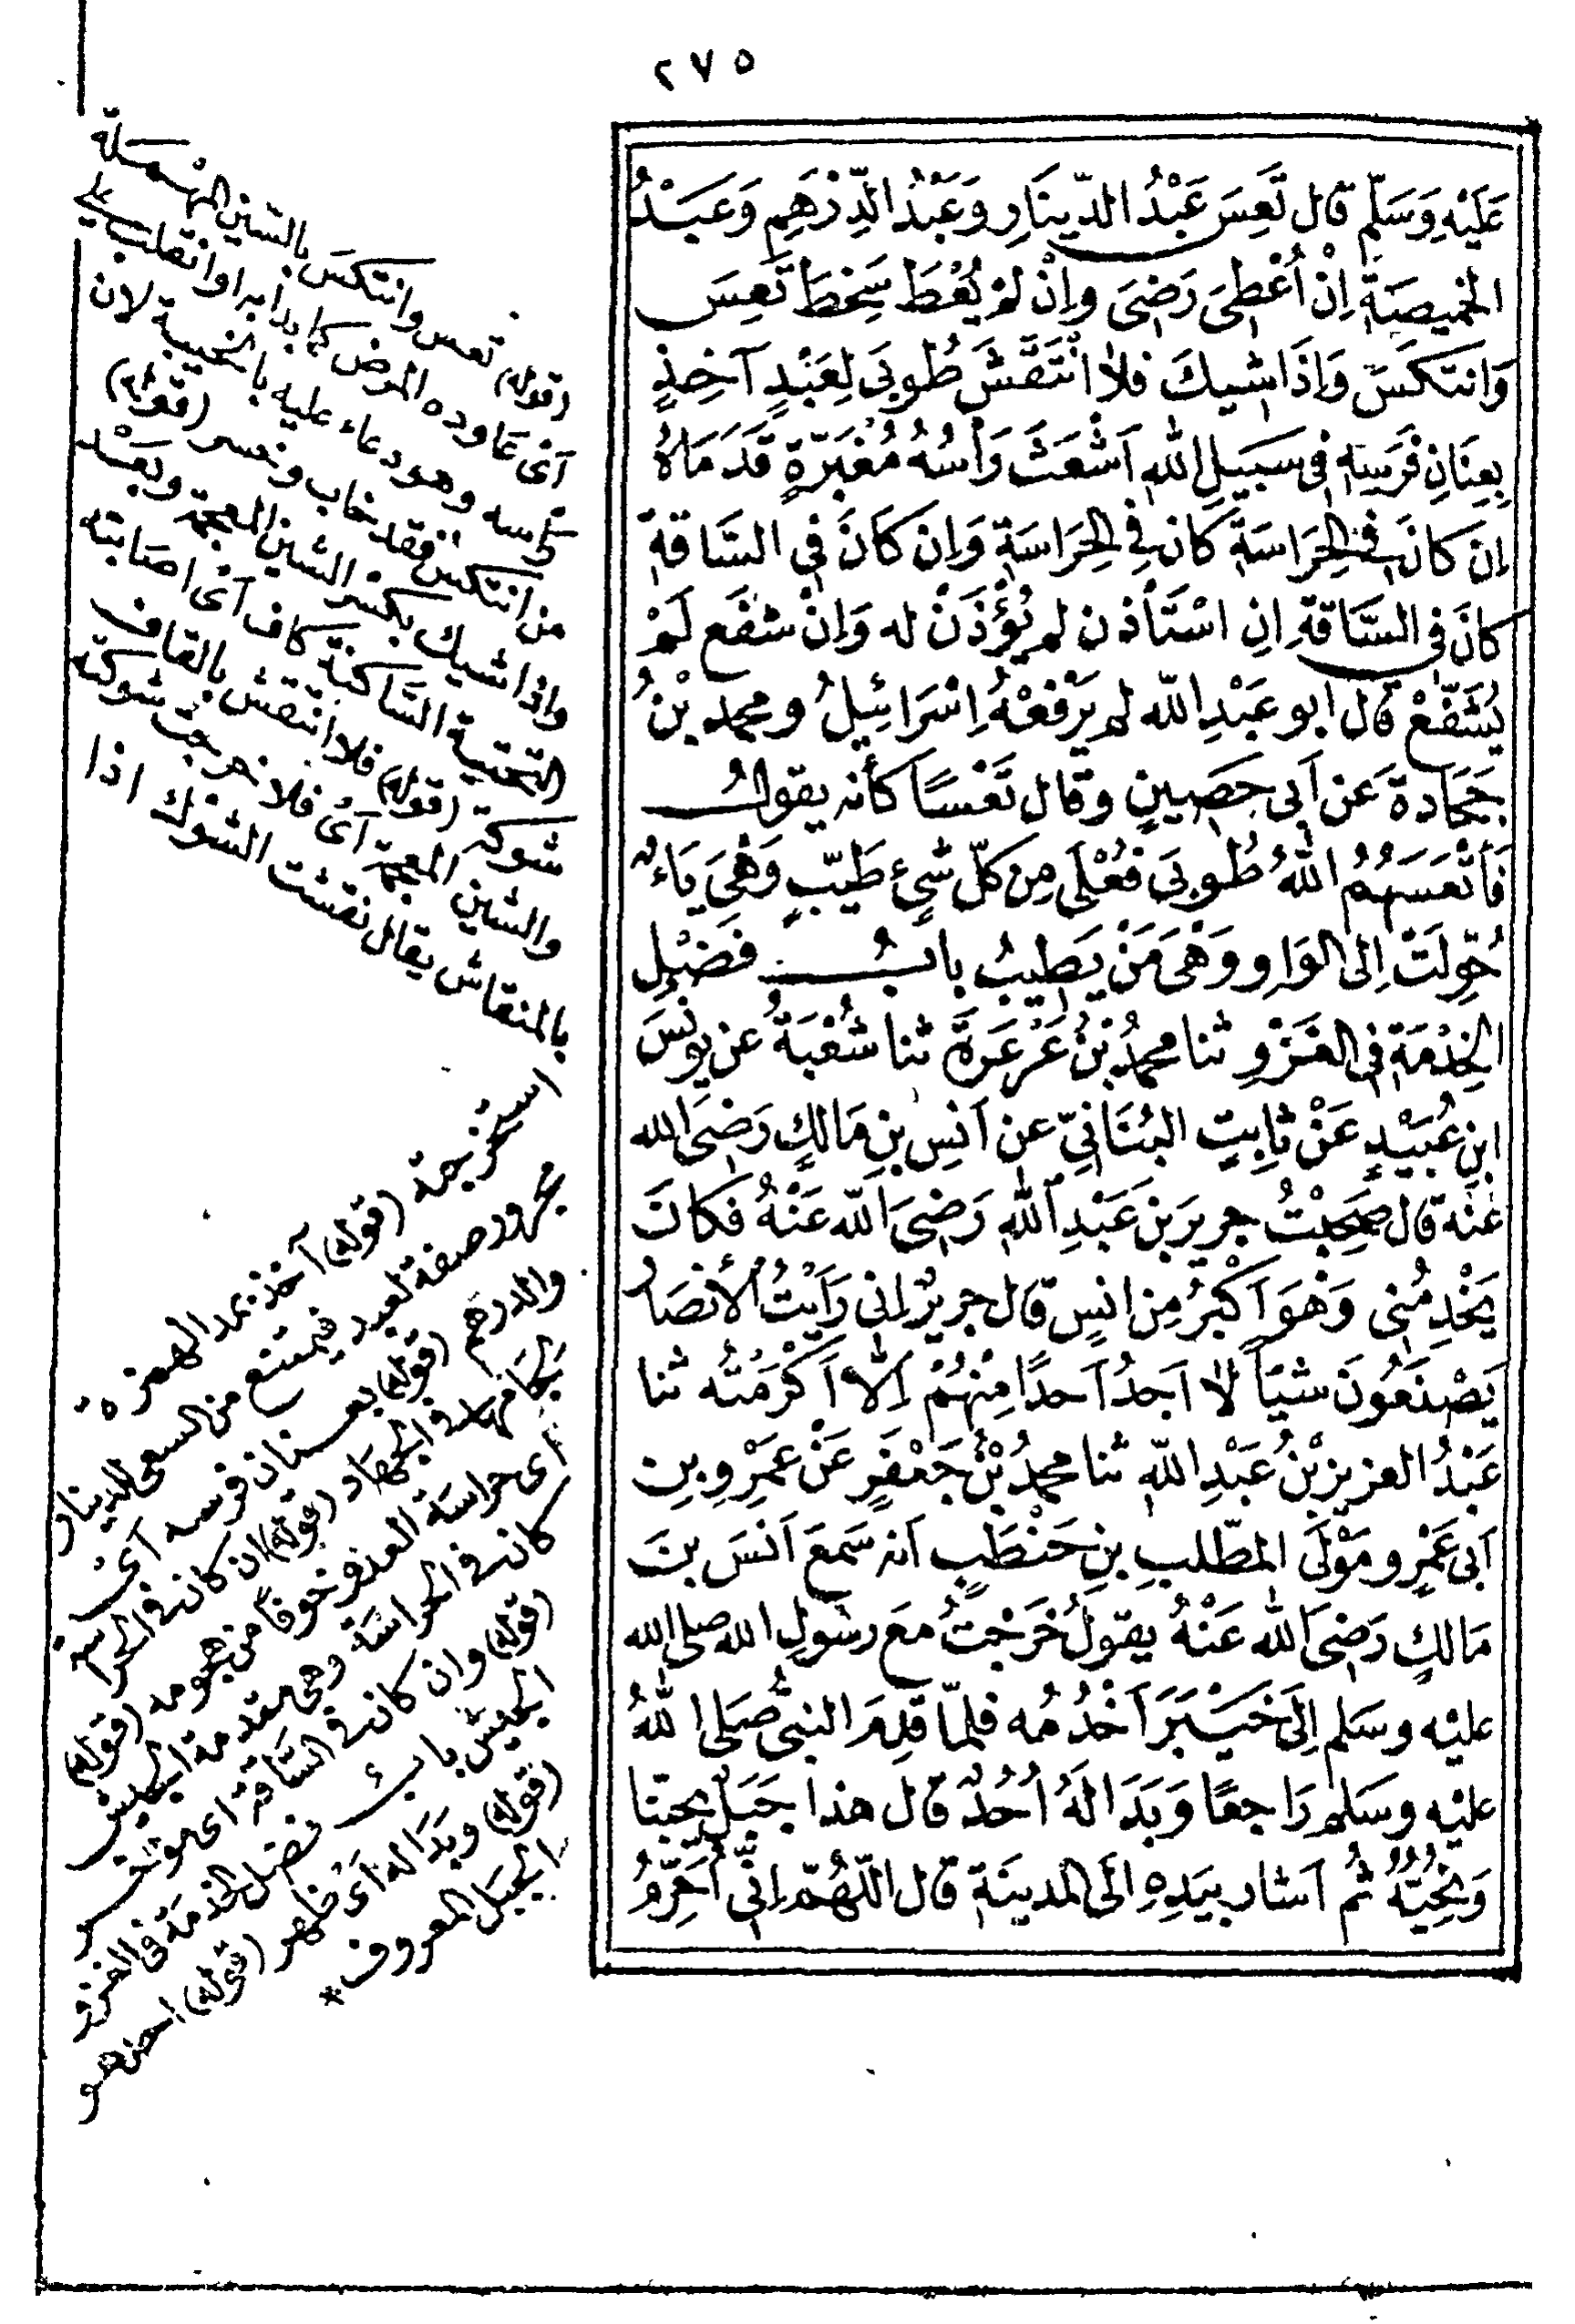 ٢٧٥
عَلَيْهِ وَسَلَّم قال تَعِسَ عَبْدُ الدّينَارِ وَعَبْدُ الدِّرْهَمِ وَعَبْدُ
الخميصَةِ اِنْ اُعْطِىَ رَضِىَ وإنْ لَمْ يُعْطَ سَخِطَ تَعِسَ
وَانتَكَسَ وَاِذَا شِيكَ فلا انْتَقَشَ طُوبَى لِعَبْدٍ آخِذٍ
بِعِنَانِ فَرَسِهِ فى سَبِيلِ اللهِ اَشْعَثَ رَأسُهُ مُغْبَرَّةٍ قَدَمَاهُ
اِنْ كَانَ فى الحِرَاسَةِ كان فِى الحِرَاسَةِ وَاِنْ كَانَ فى السَّاقَةِ
كَانَ فى السَّاقَةِ اِنِ اسْتَأذن لم يُؤْذَنْ له وَاِنْ شَفَع لَمْ
يُشَفَّعْ قال ابو عَبْدِ الله لم يَرْفَعْهُ اِسْرَائِيلُ ومحمد بْنُ
جَحَادةَ عَن اَبى حَصِينٍ وقال تَعْسًا كَأنه يقولُ
فَأَتْعَسَهُمُ اللهُ طُوبَى فُعْلَى مِن كلّ شىءٍ طَيّبٍ وَهْىَ يَاءٌ
حُوِّلَتْ اِلى الوَاوِ وَهْىَ مَنْ يَطِيبُ بابُ فَضْلِ
الخِدْمَةِ فى الغَزْوِ ثنا محمدُ بْنُ عَرْعَرَةَ ثنا شُعْبَةُ عن يونُسَ
ابنِ عُبَيْدٍ عَنْ ثَابِتٍ البُنَانِيّ عن اَنَسِ بنِ مَالكٍ رَضِىَ الله
عَنْه قال صَحِبْتُ جرِيرَ بنَ عَبْدِ اللهِ رَضِىَ الله عَنْهُ فَكانَ
يَخْدِمُنِى وَهْوَ اَكْبَرُ مِن انَسٍ قال جريرٌ اِنى رَاَيْتُ الأنْصَارَ
يَصْنَعُونَ شيَأً لا اَجِدُ اَحدًا مِنْهُمْ اِلّا اَكْرَمْتُه ثنا
عَبْدُ العزيزِ بْنُ عَبْدِ اللهِ ثنا محمدُ بْنُ جَعْفَرٍ عَنْ عَمْرِو بنِ
اَبى عَمْرٍو مَوْلَى المطّلبِ بنِ حَنْطَبٍ اَنه سَمِعَ اَنَسَ بنَ
مَالكٍ رَضِىَ الله عَنْهُ يقولُ خَرَجْتُ مَعَ رسُولِ الله صلى الله
عليْه وسَلم اِلَى خَيْبَرَ اَخْدُمُه فلمّا قَدِمَ النبىُّ صَلى اللهُ
عليْه وسَلم رَاجعًا وَبَدَا لَهُ اُحُدٌ قال هذا جَبَلٌ يُحِبّنا
وَنُحِبُّهُ ثُم اَشار بِيَدِهِ اِلَى المدينَةِ قال اللّهُمّ اِنّى اُحَرِّمُ
(قوله) تعس وانتكسَ بالسّين المهْمَلة
آى عَاوده المرض كما بدا به او انقلب على
رأسه وهو دعاء عليه بالخيبة لان
من انتكس فقد خاب وخسر (قوله)
واذا شيك بكسْر الشين المعجمَة وبَعْد
التحتية السَّاكنة كاف آى اصَابته
شوكة (قوله) فلا انتقش بالقاف
والشين المعجمة آى فلا خرجت شوكته
بالمنقاش يقال نقشت الشوك اذا
استخرجته (قوله) آخذ بمد الهمزة
مجرور صفة لعبد فيمتنع من السعى للدينار
والدرهم (قوله) بعنان فرسه آى
بلجامها فى الجهاد (قوله) ان كان فى الحراسة
أى حراسَة العدو خوفًا من هجومه (قوله)
كان فى الحراسَة وهى مقدمة الجيش
(قوله) وان كان فى السَّاقة اى مؤخر
الجيش باب فضل الخدمَة فى الغزو
(قوله) وبَدَا له أى ظهر (قوله) احد هو
الجبَل المعروف*